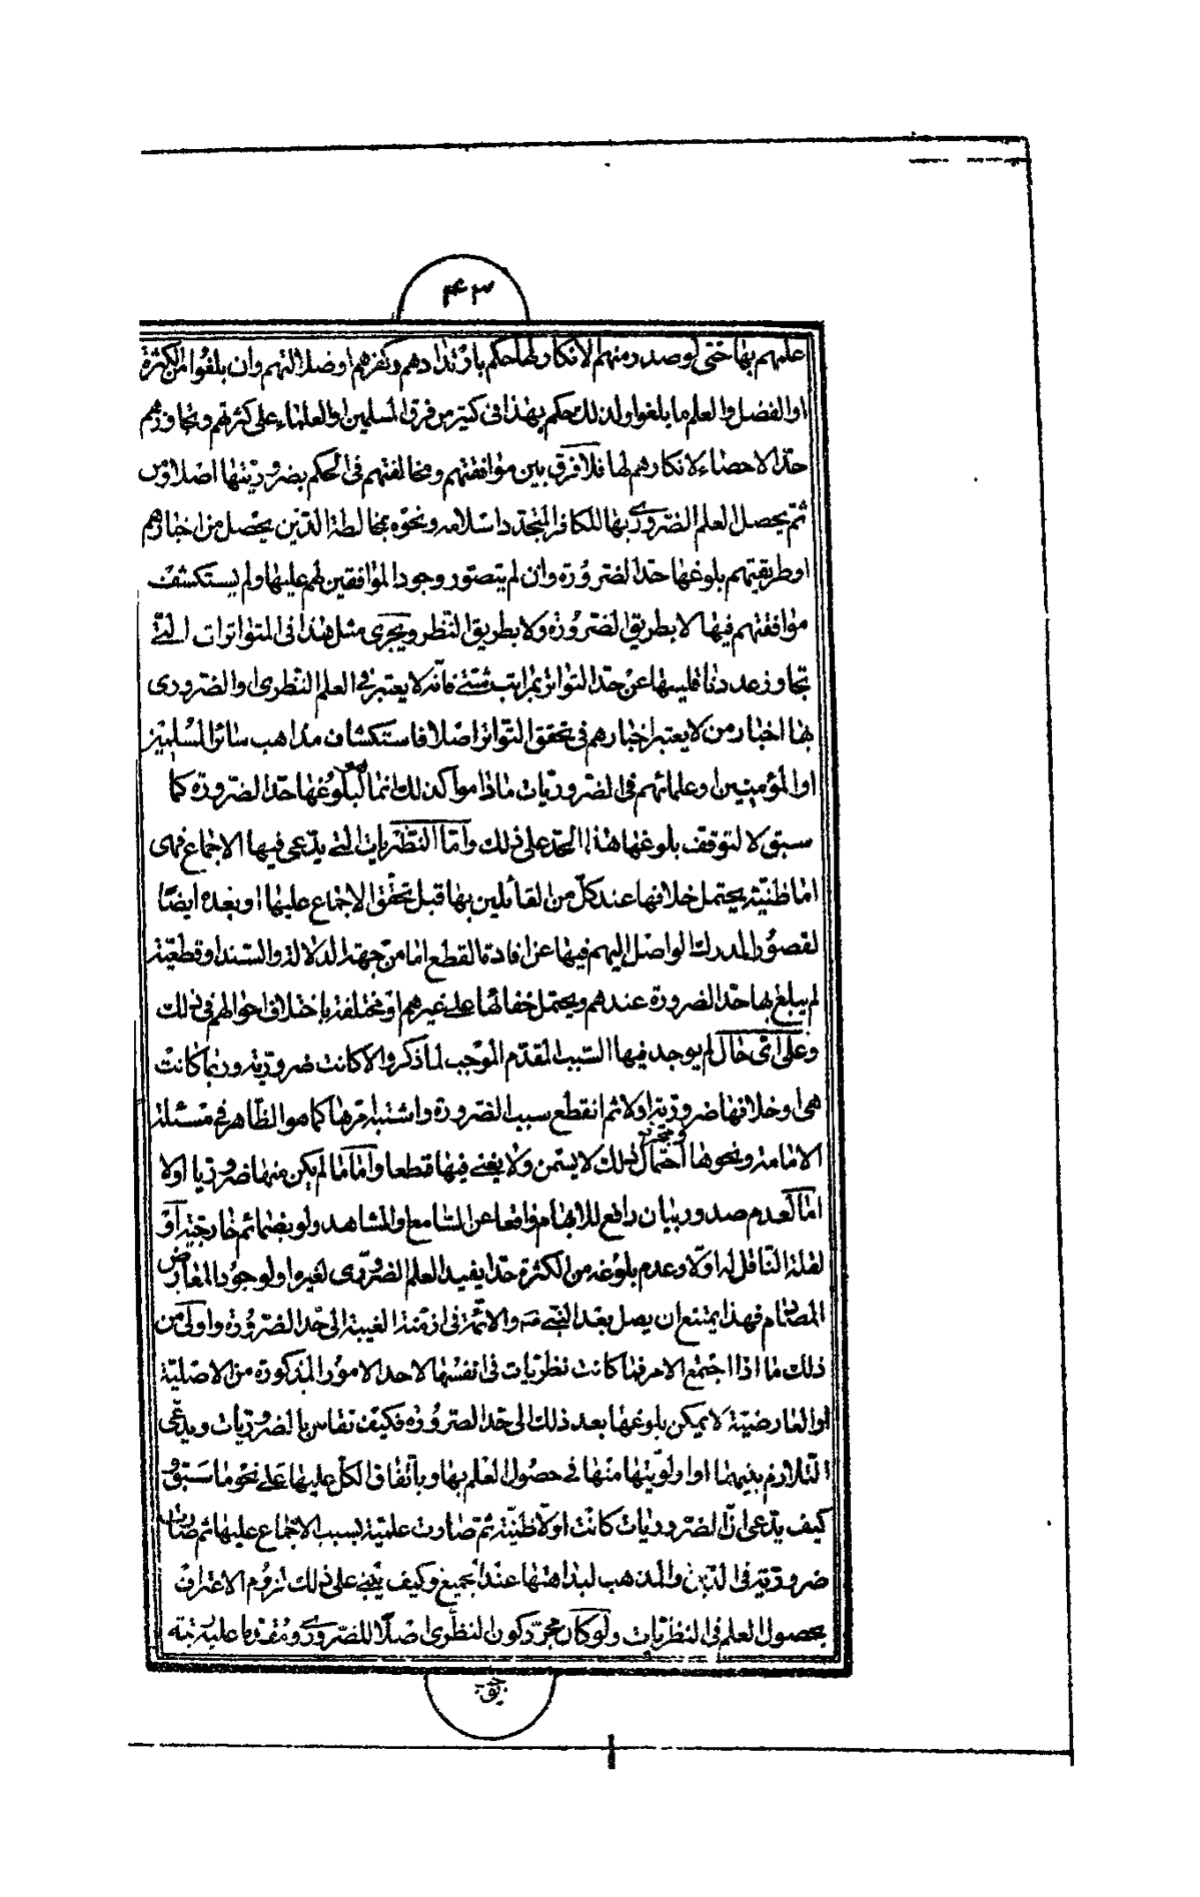 ۴۳
عليهم بها حتى لو صدر منهم الانكار لها حكم بارتدادهم وكفرهم او ضلالتهم وان بلغوا من الكثرة
او الفضل والعلم ما بلغوا ولذلك حكم بهذا فى كثير من فرق المسلمين والعلماء على كثرتهم وتجاوزهم
حد الاحصاء لانكارهم لها فلا فرق بين موافقتهم ومخالفتهم فى الحكم بضروريتها اصلا ومن
ثم يحصل العلم الضرورى بها للكافر المتجدد اسلامه ونحوه بمخالطة الذين يحصل من اخبارهم
او طريقتهم بلوغها حد الضرورة وان لم يتصور وجود الموافقين لهم عليها ولم يستكشف
موافقتهم فيها لا بطريق الضرورة ولا بطريق النظر ويجرى مثل هذا فى المتواترات التى
تجاوز عدد ناقليها عن حد التواتر بمراتب شتى فانه لا يعتبر فى العلم النظرى او الضرورى
بها اخبار من لا يعتبر اخبارهم فى تحقق التواتر اصلا فاستكشاف مذاهب سائر المسلمين
او المؤمنين او علمائهم فى الضروريات ماداموا كذلك انما هو لبلوغها حد الضرورة كما
سبق لا لتوقف بلوغها هذا الحد على ذلك واما النظريات التى يدعى فيها الاجماع فهى
اما ظنية يحتمل خلافها عند كل من القائلين بها قبل تحقق الاجماع عليها او بعده ايضا
لقصور المدرك الواصل اليهم فيها عن افادة القطع اما من جهة الدلالة والسند او قطعية
لم يبلغ بها حد الضرورة عندهم ويحتمل خفائها على غيرهم او مختلفة باختلاف احوالهم فى ذلك
وعلى اى حال لم يوجد فيها السبب المقدم الموجب لما ذكر والا كانت ضرورية وربما كانت
هى او خلافها ضرورية اولا ثم انقطع سبب الضرورة واشتبه امرها كما هو الظاهر فى مسئلة
الامامة ونحوها ومجرد احتمال ذلك لا يسمن ولا يغنى فيها قطعا واما ما لم يكن منها ضروريا اولا
اما لعدم صدور بيان رافع للابهام واقعا عن السامع او المشاهد ولو بضمائم خارجية او
لقلة الناقل له اولا وعدم بلوغه من الكثرة حدا يفيد العلم الضرورى لغيره او لوجود المعارض
المصادم فهذا يمتنع ان يصل بعد النبى صه والائمة فى ازمنة الغيبة الى حد الضرورة واولى من
ذلك ما اذا اجتمع الامر فما كانت نظريات فى انفسها لاحد الامور المذكورة من الاصلية
او العارضية لا يمكن بلوغها بعد ذلك الى حد الضرورة فكيف تقاس بالضروريات ويدعى
التلازم بينهما او اولويتها منها فى حصول العلم بها وباتفاق الكل عليها على نحو ما سبق و
كيف يدعى ان الضروريات كانت اولا ظنية ثم صارت علمية بسبب الاجماع عليها ثم صارت
ضرورية فى الدين والمذهب لبداهتها عند الجميع وكيف يبنى على ذلك لزوم الاعتراف
بحصول العلم فى النظريات ولو كان مجرد كون النظرى اصلا للضرورى ومقدما عليه رتبة